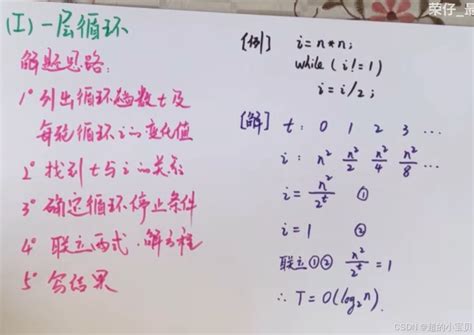 荣仔_最
(I) 一层循环
解题思路:
1° 列出循环趟数 t 及
每轮循环 i 的变化值
2° 找到 t 与 i 的关系
3° 确定循环停止条件
4° 联立两式,解方程
5° 写结果
[例] i=n*n;
while (i!=1)
i=i/2;
[解] t: 0 1 2 3 ...
i: n² n²/2 n²/4 n²/8 ...
i= n²/2^t ①
i=1 ②
联立①② n²/2^t =1
∴ T=O(log₂n).